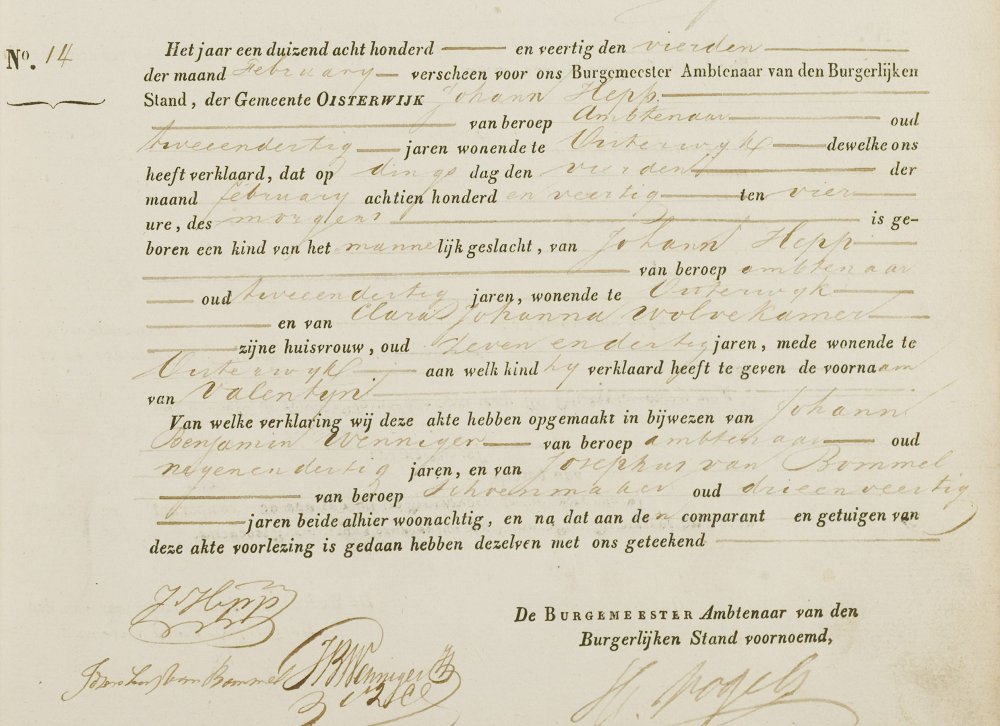 N.o 14
Het jaar een duizend acht honderd en veertig den vierden
der maand February verscheen voor ons Burgemeester Ambtenaar van den Burgerlijken
Stand, der Gemeente OISTERWIJK Johann Hepp
van beroep Ambtenaar oud
tweeendertig jaren wonende te Oisterwyk dewelke ons
heeft verklaard, dat op dings dag den vierden der
maand february achtien honderd en veertig ten vier
ure, des morgens is ge-
boren een kind van het mannelijk geslacht, van Johann Hepp
van beroep ambtenaar
oud tweeendertig jaren, wonende te Oisterwyk
en van Clara Johanna Wolvekamer
zijne huisvrouw, oud zeven endertig jaren, mede wonende te
Oisterwyk aan welk kind hy verklaard heeft te geven de voornaam
van Valentyn
Van welke verklaring wij deze akte hebben opgemaakt in bijwezen van Johann
Benjamin Wenniger van beroep ambtenaar oud
negenendertig jaren, en van Josephus van Bommel
van beroep Schoenmaker oud drieenveertig
jaren beide alhier woonachtig, en na dat aan den comparant en getuigen van
deze akte voorlezing is gedaan hebben dezelven met ons geteekend
J Hepp
De BURGEMEESTER Ambtenaar van den
Burgerlijken Stand voornoemd,
JB Wenniger
van Bommel
Vogels